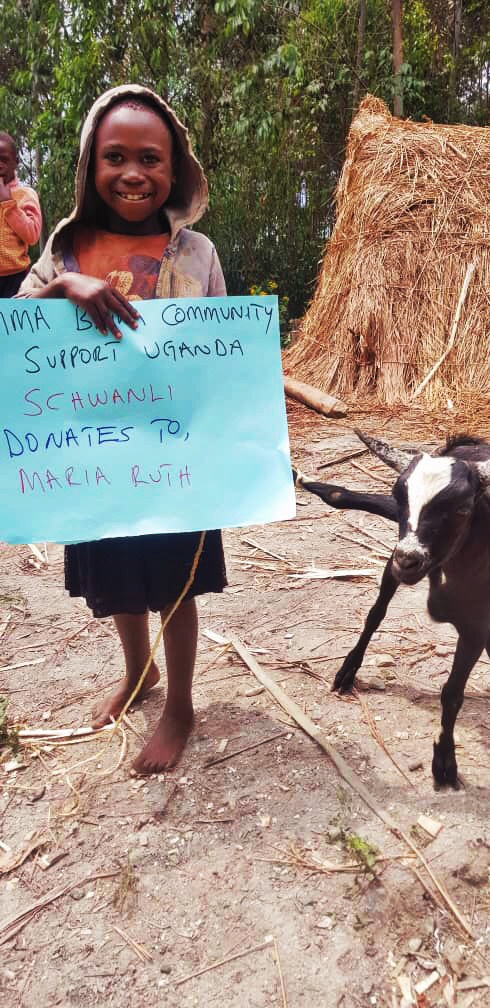 COMMUNITY
SUPPORT UGANDA
SCHWANLI
DONATES TO,
MARIA RUTH